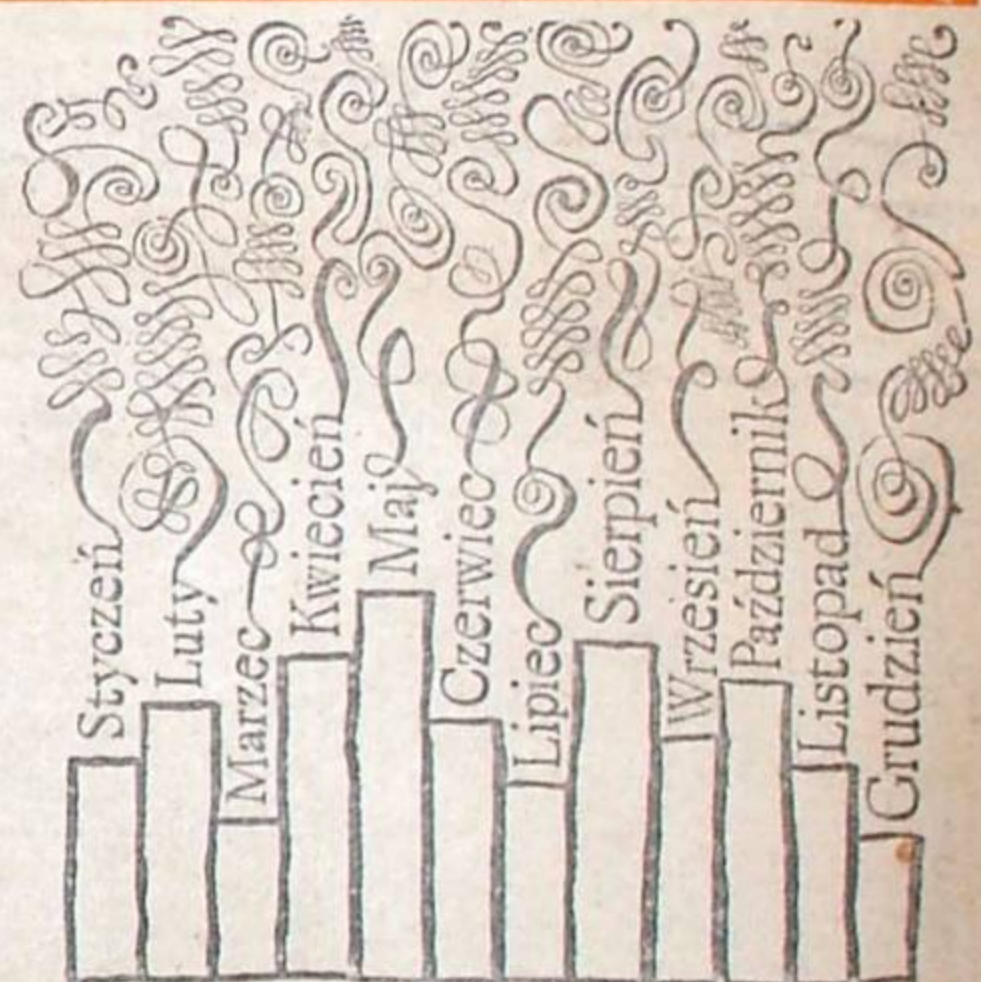 Styczeń
Luty
Marzec
Kwiecień
Maj
Czerwiec
Lipiec
Sierpień
Wrzesień
Październik
Listopad
Grudzień